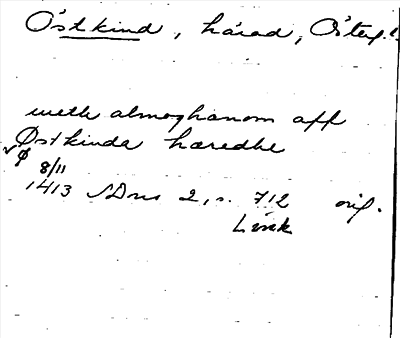 Östkind, härad, Östergl.
meth almoghanom aff
Østkinda hæredhe
√ φ
8/11
1413 SDns 2, s. 712 orig.
Link